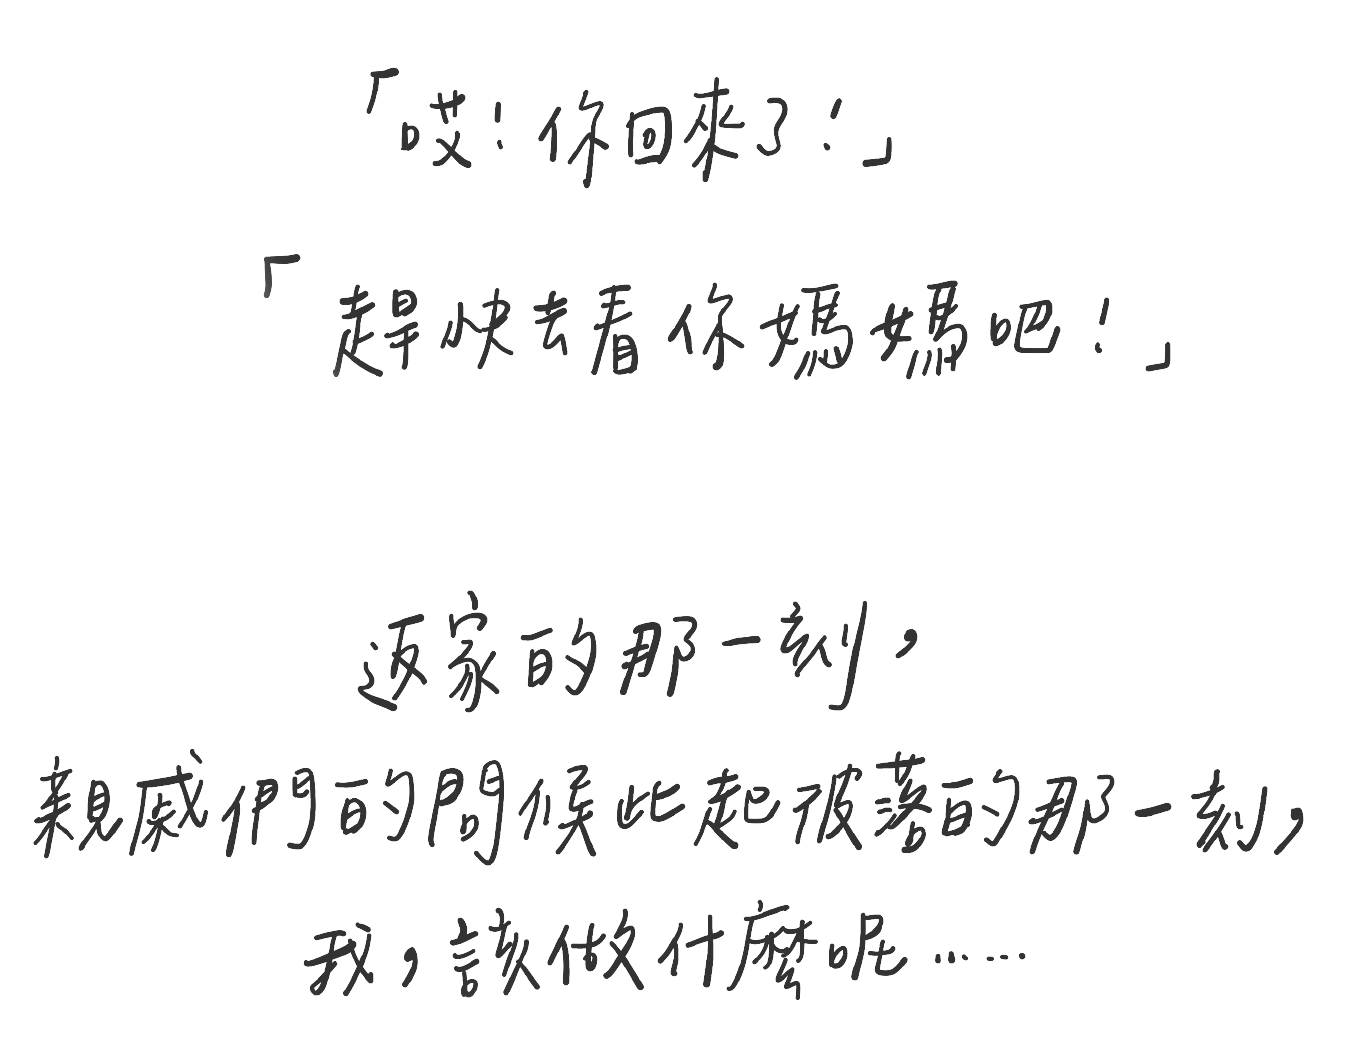 「哎！你回來了！」
「趕快去看你媽媽吧！」
返家的那一刻，
親戚們的問候此起彼落的那一刻，
我，該做什麼呢……